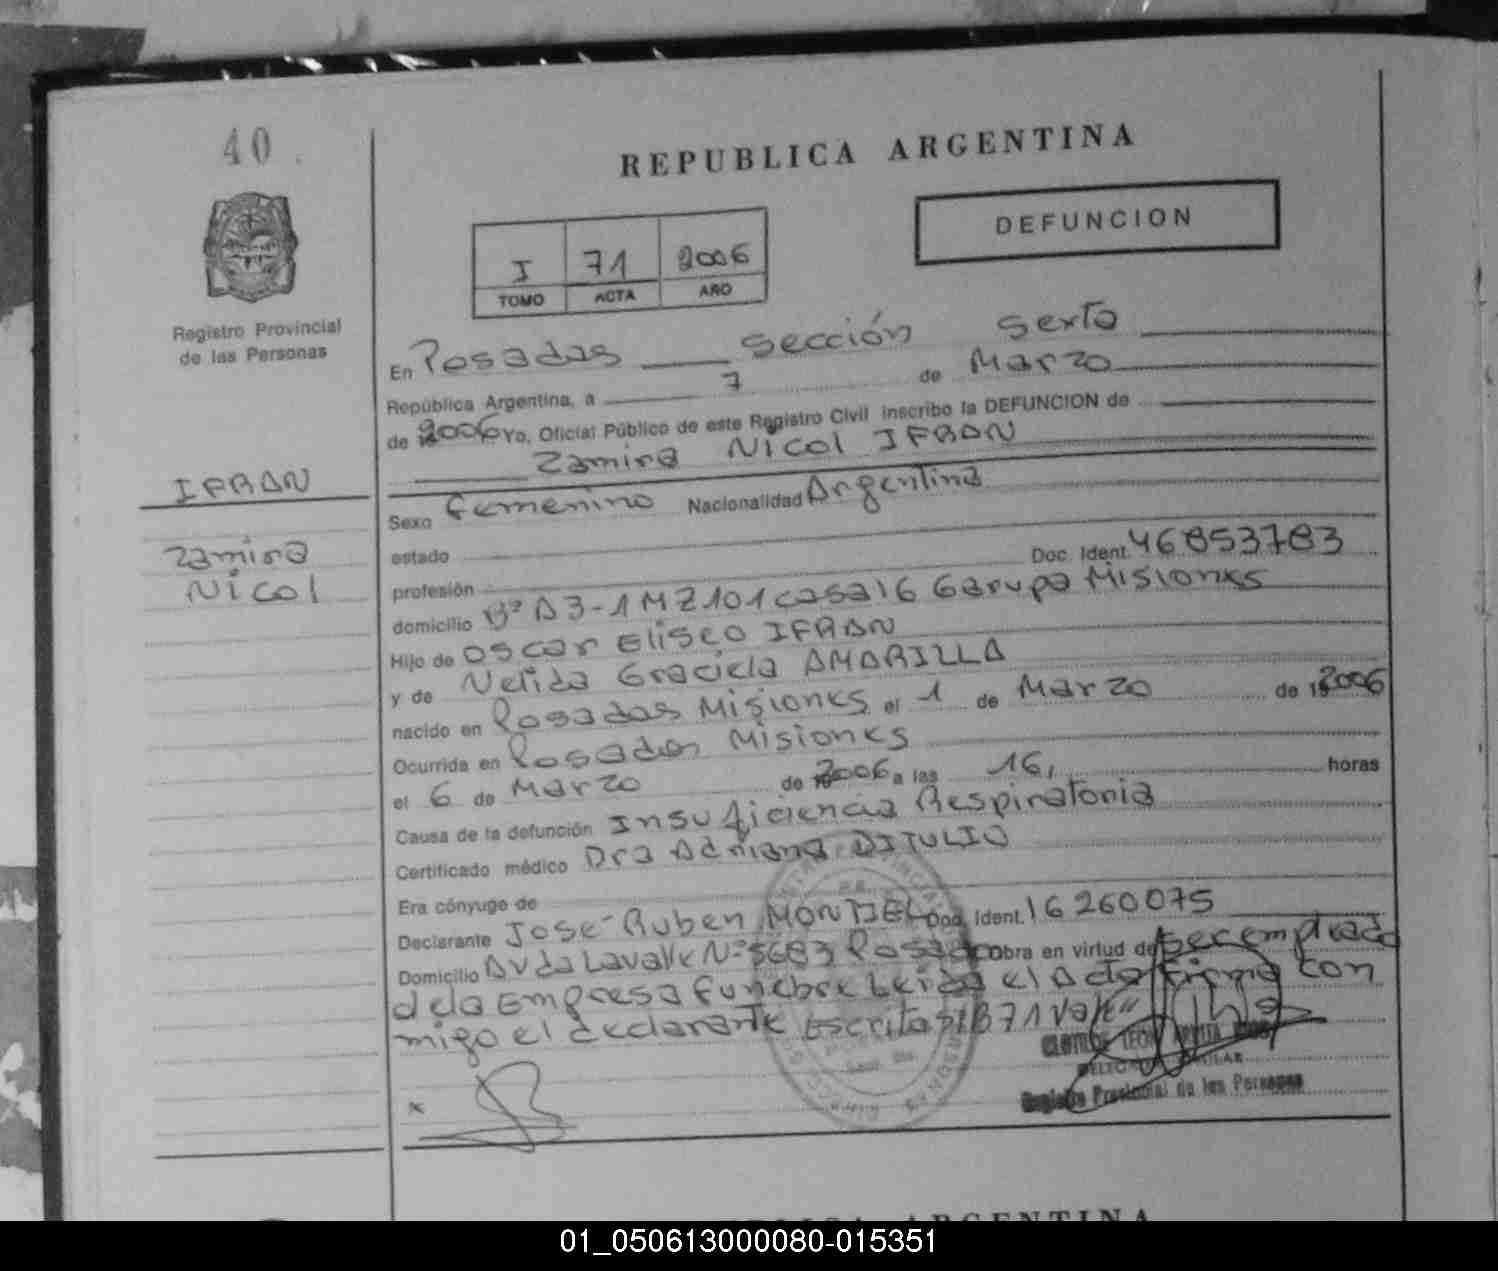 40
REPUBLICA ARGENTINA
DEFUNCION
I 71 2006
TOMO ACTA AÑO
Registro Provincial
de las Personas
En Posadas sección sexta
República Argentina, a 7 de Marzo
de 2006 Yo, Oficial Público de este Registro Civil inscribo la DEFUNCION de
Zamira Nicol IFRAN
IFRAN
Zamira
Nicol
Sexo femenino Nacionalidad Argentina
estado Doc. Ident. 46853783
profesión
domicilio Bº A3-1 MZ101 casa16 Garupa Misiones
Hijo de Oscar Eliseo IFRAN
y de Nelida Graciela AMARILLA
nacido en Posadas Misiones el 1 de Marzo de 2006
Ocurrida en Posadas Misiones
el 6 de Marzo de 2006 a las 16, horas
Causa de la defunción Insuficiencia Respiratoria
Certificado médico Dra Adriana DITULIO
Era cónyuge de
Declarante Jose Ruben MONTIEL Doc. Ident. 16260075
Domicilio Avda Lavalle Nº 5683 Posadas obra en virtud de ser empleado
de la Empresa funebre Leida el Acta firma con
migo el declarante Escrito S/B 71 Vale"
x
CLOTILDE LEON
Registro Provincial de las Personas
REPUBLICA ARGENTINA
01_050613000080-015351